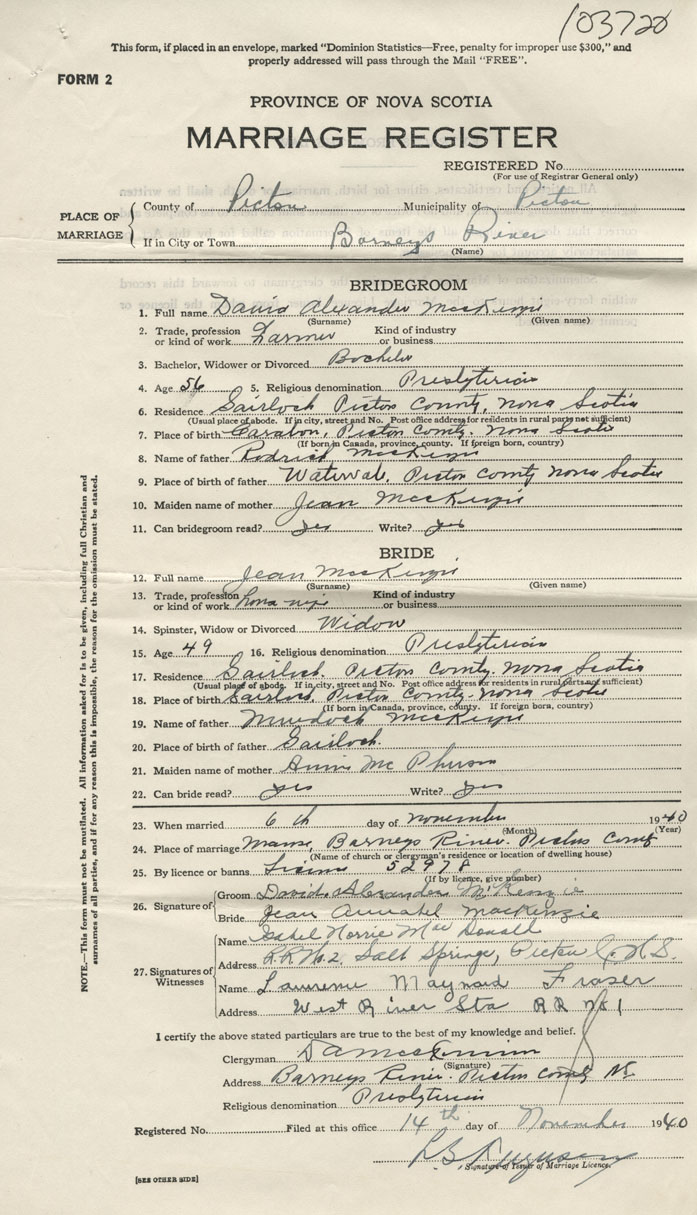 103720
This form, if placed in an envelope, marked "Dominion Statistics—Free, penalty for improper use $300," and
properly addressed will pass through the Mail "FREE".
FORM 2
PROVINCE OF NOVA SCOTIA
MARRIAGE REGISTER
REGISTERED No.
(For use of Registrar General only)
PLACE OF MARRIAGE
County of Pictou Municipality of Pictou
If in City or Town Barneys River
(Name)
BRIDEGROOM
1. Full name David Alexander MacKenzie
(Surname) (Given name)
2. Trade, profession or kind of work Farmer Kind of industry or business
3. Bachelor, Widower or Divorced Bachelor
4. Age 56 5. Religious denomination Presbyterian
6. Residence Gairloch Pictou County, Nova Scotia
(Usual place of abode. If in city, street and No. Post office address for residents in rural parts not sufficient)
7. Place of birth Pictou County. Nova Scotia
(If born in Canada, province, county. If foreign born, country)
8. Name of father Rodrick MacKenzie
9. Place of birth of father Watervale, Pictou County Nova Scotia
10. Maiden name of mother Jean MacKenzie
11. Can bridegroom read? yes Write? yes
BRIDE
12. Full name Jean MacKenzie
(Surname) (Given name)
13. Trade, profession or kind of work Kind of industry or business
14. Spinster, Widow or Divorced Widow
15. Age 49 16. Religious denomination Presbyterian
17. Residence Gairloch. Pictou County. Nova Scotia
(Usual place of abode. If in city, street and No. Post office address for residents in rural parts are sufficient)
18. Place of birth Gairloch, Pictou County. Nova Scotia
(If born in Canada, province, county. If foreign born, country)
19. Name of father Murdoch MacKenzie
20. Place of birth of father Gairloch.
21. Maiden name of mother Annie McPherson
22. Can bride read? yes Write? yes
23. When married 6th day of November 1940
(Month) (Year)
24. Place of marriage Manse, Barneys River. Pictou County
(Name of church or clergyman's residence or location of dwelling house)
25. By licence or banns License 52978
(If by licence, give number)
26. Signature of
Groom David Alexander McKenzie
Bride Jean Annabel MacKenzie
27. Signatures of Witnesses
Name Isabel Norrie MacDonald
Address R.R. No. 2. Salt Springs, Pictou Co. N.S.
Name Lawrence Maynard Fraser
Address West River Sta RR No 1
I certify the above stated particulars are true to the best of my knowledge and belief.
Clergyman D A MacKinnon
(Signature)
Address Barneys River. Pictou County NS
Religious denomination Presbyterian
Registered No. Filed at this office 14th day of November 1940
Ferguson
Signature of Issuer of Marriage Licence.
[SEE OTHER SIDE]
NOTE.—This form must not be mutilated. All information asked for is to be given, including full Christian and
surnames of all parties, and if for any reason this is impossible, the reason for the omission must be stated.